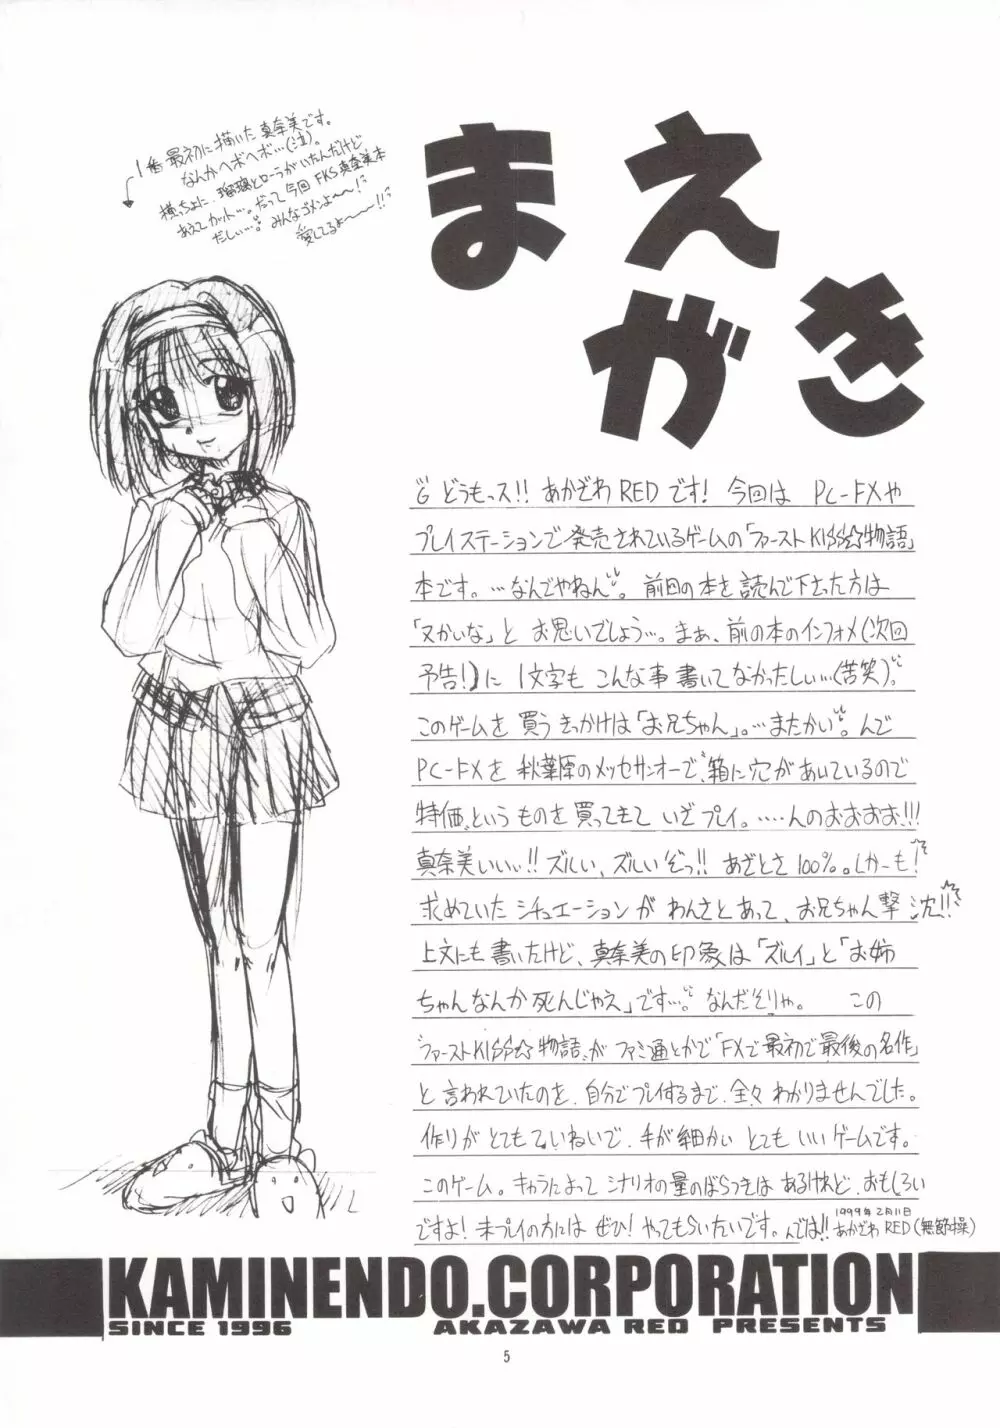 1番最初に描いた真奈美です。
なんかヘボヘボ…(泣)。
横っちょに、瑠璃とローラがいたんだけど
あえてカット…。だって今回FKS真奈美本
だしぃ…。みんなゴメンよ～～！
愛してるよ～～～!!
まえ
がき
どうもっス!! あかざわREDです! 今回は PC-FXや
プレイステーションで発売されているゲームの「ファーストKISS☆物語」
本です。…なんでやねん。前回の本を読んで下さった方は
「又かいな」と お思いでしょう…。まぁ、前の本のインフォメ(次回
予告!)に 1文字も こんな事 書いてなかったしぃ…(苦笑)。
このゲームを 買う きっかけは「お兄ちゃん」。…またかい。んで
PC-FXを 秋葉原のメッセサンオーで〝箱に穴があいているので
特価〟という ものを 買ってきて いざ プレイ。……んのおおおお!!!
真奈美いいぃ!! ズルい、ズルいぞっ!! あざとさ 100%。しかーも!
求めていた シチュエーションが わんさとあって、お兄ちゃん撃沈!!
上文にも 書いたけど、真奈美の印象は「ズルイ」と「お姉
ちゃんなんか 死んじゃえ」です…。なんだそりゃ。 この
〝ファーストKISS☆物語〟が ファミ通とかで「FXで最初で最後の名作」
と 言われていたのを、自分でプレイするまで、全々 わかりませんでした。
作りが とても ていねいで、手が細かい とても いいゲームです。
このゲーム。キャラによって シナリオの量のばらつきは あるけれど、おもしろい
ですよ! 未プレイの方には ぜひ! やってもらいたいです。んでは!!
1999年2月11日
あかざわ RED(無節操)
KAMINENDO.CORPORATION
SINCE 1996 AKAZAWA RED PRESENTS
5